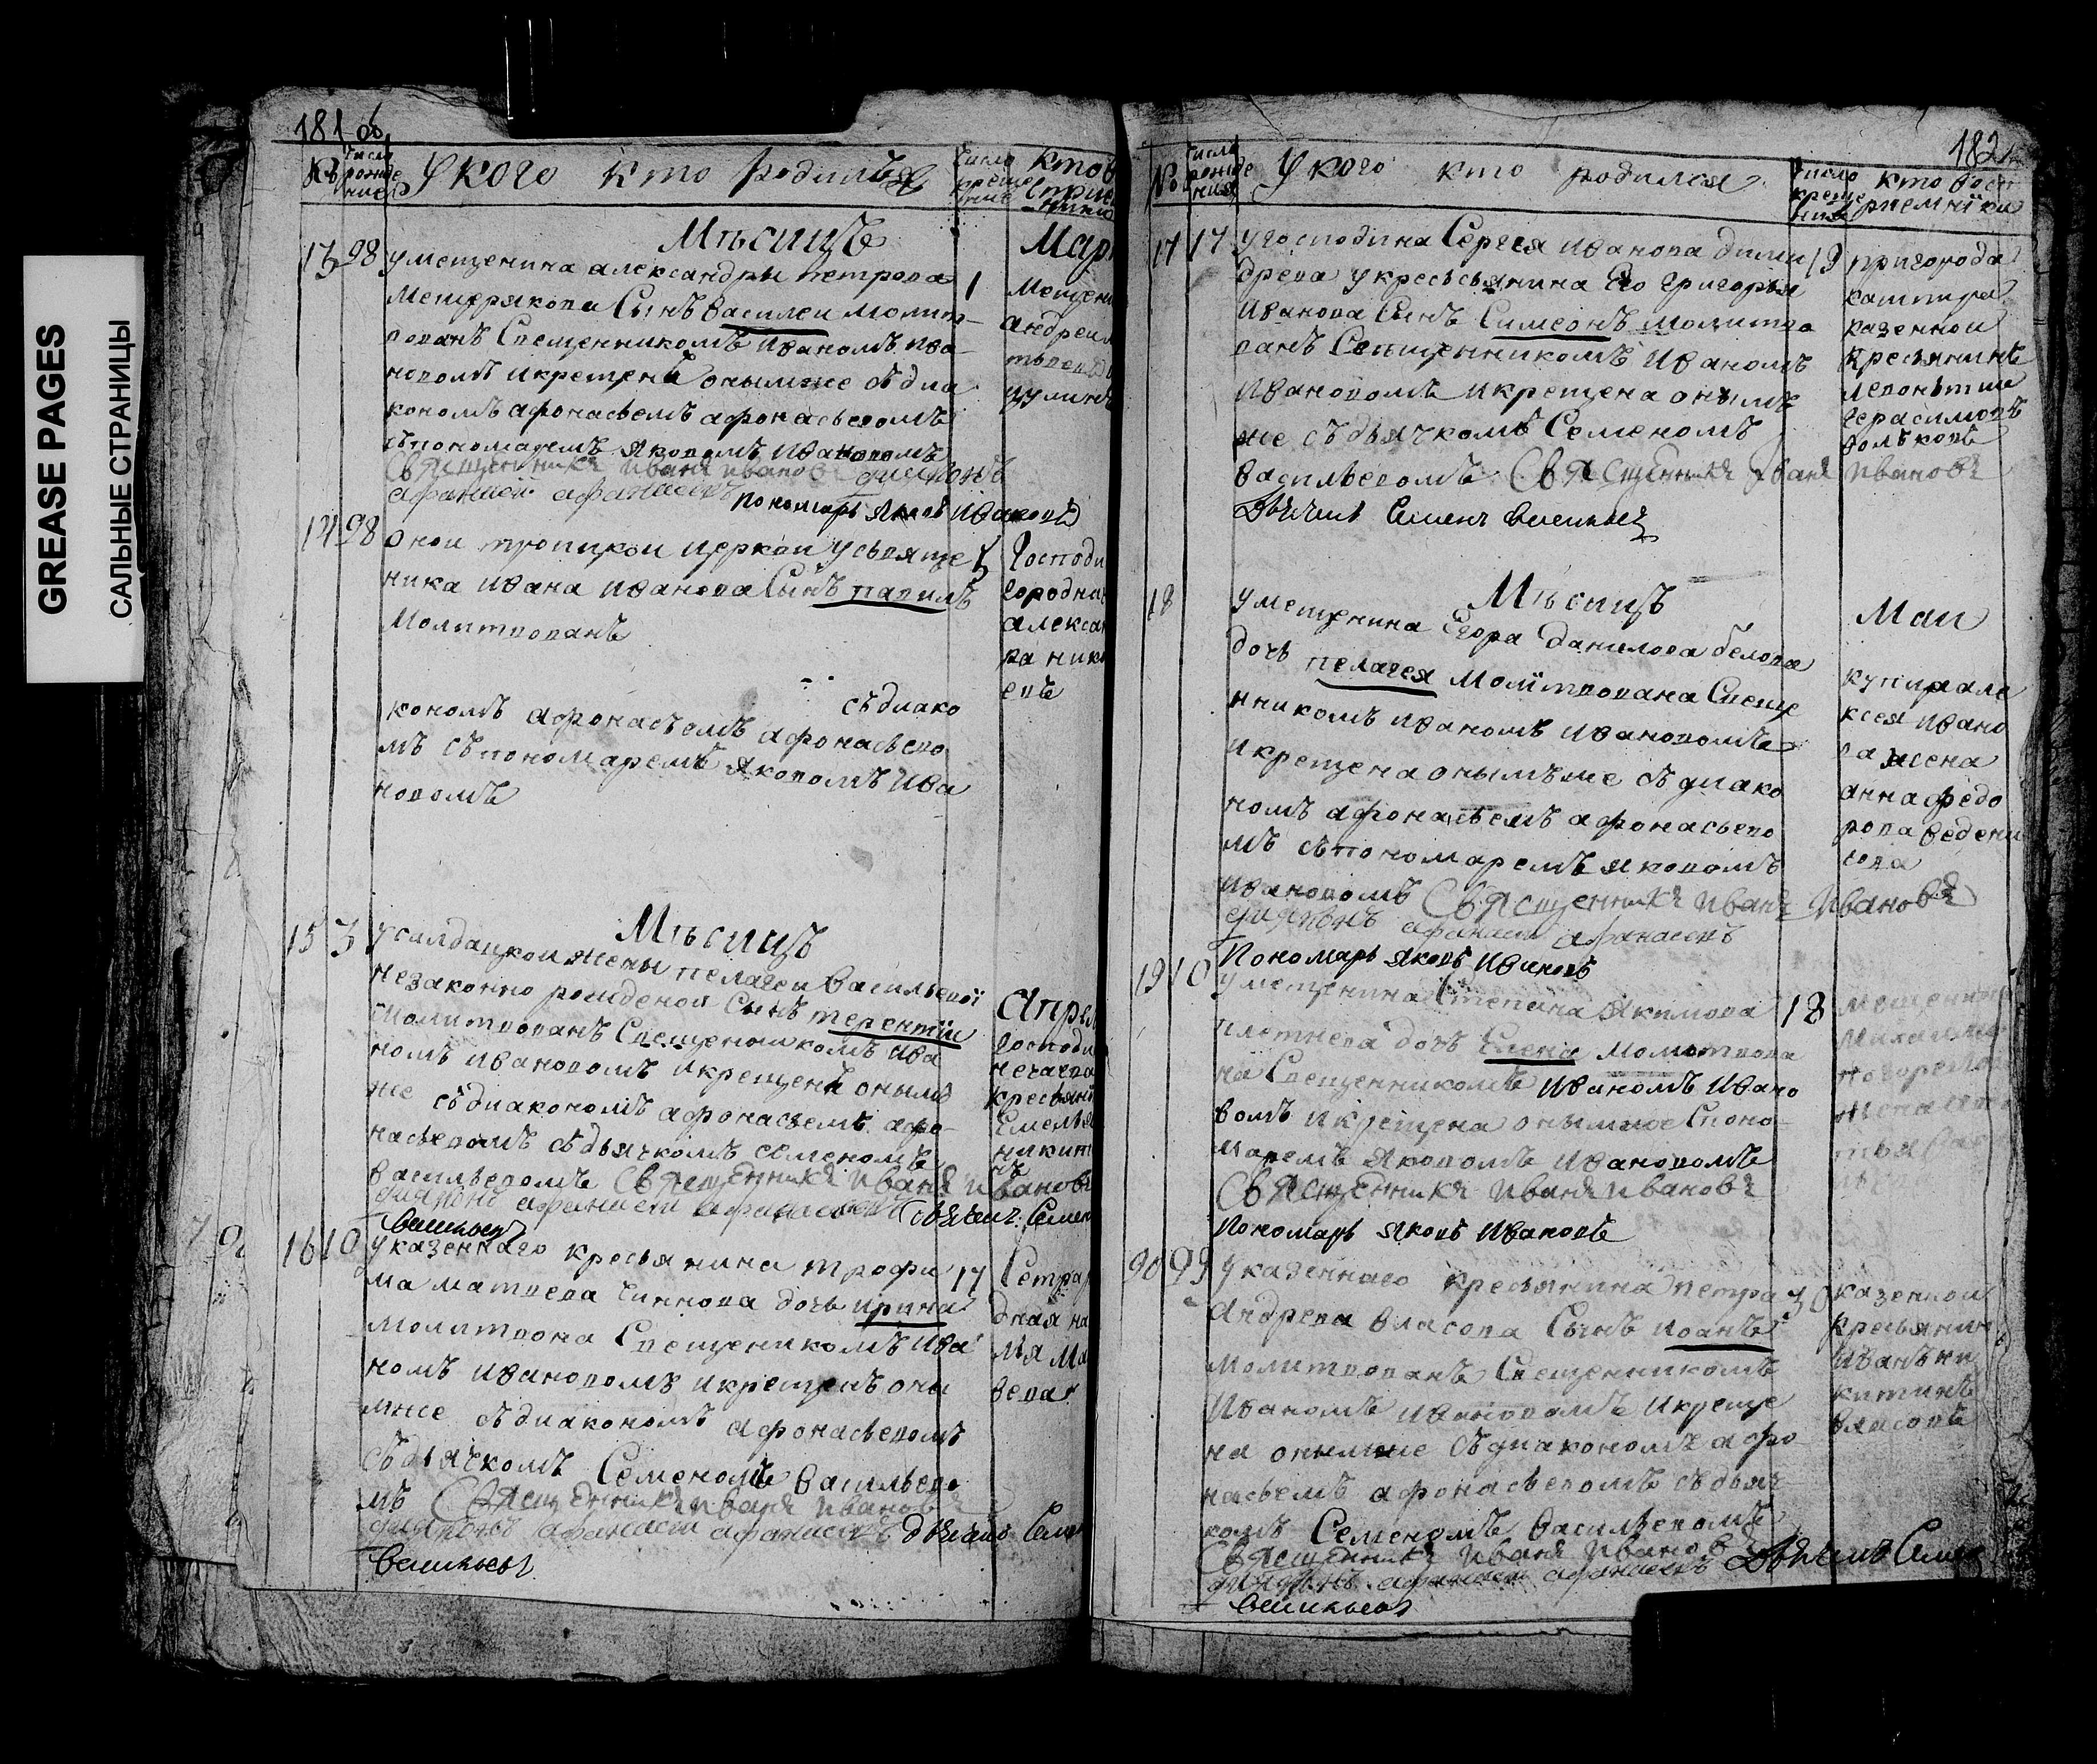 GREASE PAGES
САЛЬНЫЕ СТРАНИЦЫ
181 об
№ Число рожде ние У кого кто родился Число креще ние Кто в
Мѣсицъ Мар
13 28 у мещенина александры петрова 1
Мещерякова Сынъ василеи молит-
вованъ Свещенникомъ иваномъ ива-
новомъ и крещенъ онымже съ диа
кономъ афонасьемъ афонасьевомъ
съ пономаремъ яковомъ ивановомъ
Священникъ иванъ ивановъ диаконъ
афанасей афанасьевъ пономарь яковъ ивановъ
14 28 Онои троицкои церкви у свяще
ника ивана иванова Сынъ павилъ
молитвованъ
съ диако
кономъ афонасьемъ афонасьево
мъ съ пономаремъ яковомъ ива
новомъ
Господи
городни
алексан
ра ники
евъ
Мѣсицъ
Апрел
15 3 у салдацкои жены пелагеи васильевои
незаконно рожденои Сынъ терентїи
молитвованъ Свещенникомъ ива
номъ ивановомъ и крещенъ оным
же съ диакономъ афонасьемъ афо-
насьевомъ съ дьячкомъ семеномъ
васильевомъ Священникъ иванъ ивановъ
диаконъ афанасеи афанасьевъ дьячекъ Семен
васильевъ
16 10 у казеннаго кресьянина трофи 17
ма матвева Чиннова дочь ирина
молитвона Свещеникомъ ива
номъ ивановомъ и крещенъ оны
мже съ диакономъ афонасьевомъ
съ дьячкомъ Семеномъ васильево
мъ Священникъ иванъ ивановъ
диаконъ афанасеи афанасьевъ дьячекъ Семен
васильевъ
182
№ Число рожде ния У кого кто родился Число креще ния кто восп риемники
17 17 у господина Сергея иванова дими 19
древа у кресьсьянина Его григорья
иванова Сынъ Симеонъ молитво
ванъ Свещенникомъ иваномъ
ивановомъ и крещена онымъ
же съ дьячкомъ Семеномъ
васильевомъ Священникъ иванъ ивановъ
Дьячекъ Семенъ васильевъ
пригорода
казеннои
кресьянинъ
леонътии
герасимовъ
волковъ
Мѣсицъ Маи
18 у мещенина Егора данилова белова
дочь пелагея молїтвована Свеще
нникомъ иваномъ ивановомъ
и крещена онымъже съ диако
номъ афонасьемъ афонасьево
мъ съ пономаремъ яковомъ
ивановомъ Священникъ иванъ ивановъ
диаконъ афанасеи афанасьевъ
Пономарь яковъ ивановъ
купца але
ксея ивано
ва жена
анна федо
рова ведени
19 10 у мещенина Степана якимова 18
плетнева дочь Елена молитвова
на Свещенникомъ иваномъ ивано
вомъ и крещена онымже Споно-
маремъ яковомъ ивановомъ
Священникъ иванъ ивановъ
Пономарь яковъ ивановъ
20 23 у казеннаго кресьянина петра 30
андрева власова Сынъ иоанъ
молитвованъ Свещенникомъ
иваномъ ивановомъ и креще
на онымже съ диакономъ афо-
насьемъ афонасьевомъ съ дьяч
комъ Семеномъ васильевомъ
Священникъ иванъ ивановъ
диаконъ афанасеи афанасьевъ Дьячекъ Семен
васильевъ
казеннои
кресьянин
иванъ ни
китинъ
власовъ